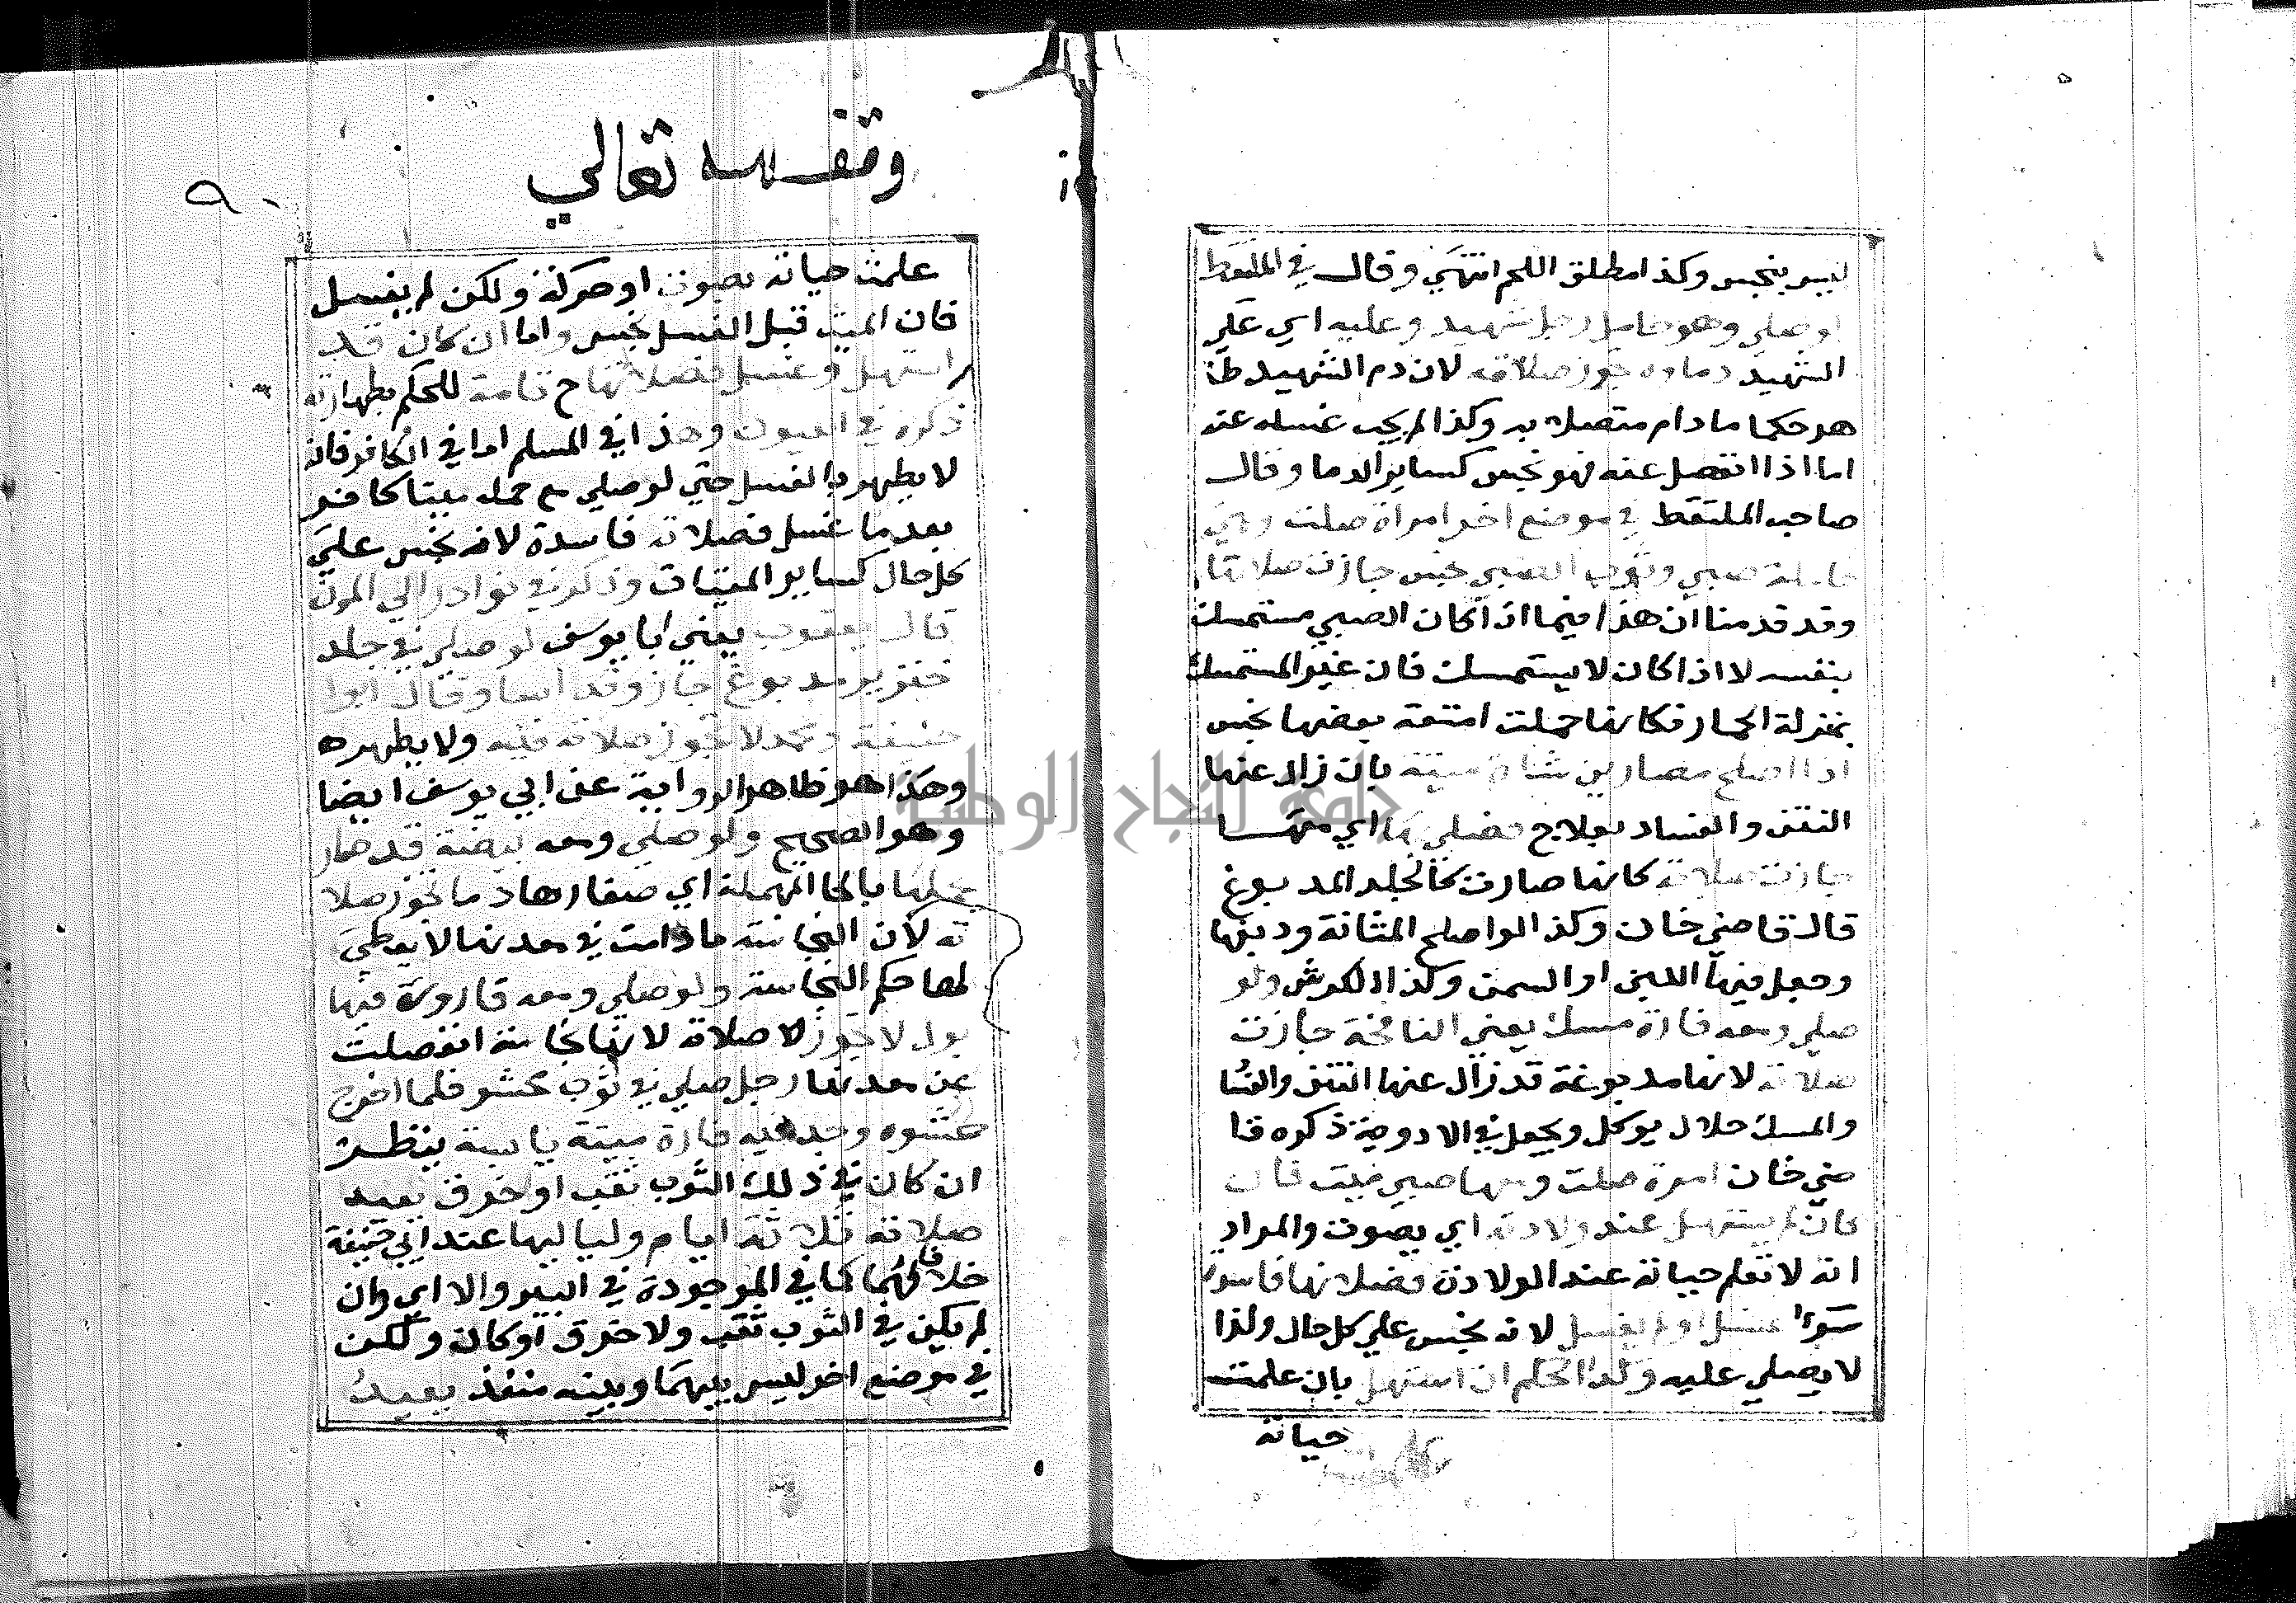 ليس بنجس وكذا مطلق اللحم انتهي وقال في الملتقط
لو صلي وهو حامل رجل شهيد وعليه اي علي
الشهيد دماوه تجوز صلاته لان دم الشهيد طا
هر حكما ما دام متصلا به وكذا لم يجب غسله عنه
اما اذا انفصل عنه فهو نجس كساير الدما وقال
صاحب الملتقط في موضع اخر امراة صلت وهي
حاملة صبي وثوب الصبي نجس جازت صلاتها
وقد قدمنا ان هذا فيما اذا كان الصبي مستمسك
بنفسه لا اذا كان لا يستمسك فان غير المستمسك
بمنزلة الجماد فكانها حملت امتعة بعضها نجس
اذا اصلح مصارين شاة ميتة بان زال عنها
النتن والفساد بعلاج فصلي بها اي معهــا
جازت صلاته كانها صارت كالجلد المدبوغ
قال قاضي خان وكذا لو اصلح المثانة ودبغها
وجعل فيها اللبن او السمن وكذا الكوش ولو
صلي ومعه فارة مسك يعني النافخة جازت
صلاته لانها مدبوغة قد زال عنها النتن والفسا
والمسك حلال يوكل ويجعل في الادوية ذكره قا
ضي خان امرة صلت ومعها صبي ميت فان
كان لم يستهل عند ولادته اي يصوت والمراد
انه لا تعلم حياته عند الولادة فصلاتها فاسدة
سوا غسل او لم يغسل لانه نجس علي كل حال ولذا
لا يصلي عليه وكذا الحكم ان استهل بان علمت
حياته
وقف لله تعالي
٩٠
علمت حياته بصوت او حركة ولكن لم يغسل
فان الميت قبل الغسل نجس واما ان كان قد
استهل وغسل فصلاتها ح تامة للحكم بطهارته
ذكره في العيون وهذا في المسلم اما في الكافر فانه
لا يطهر بالغسل حتي لو صلي مع حمله ميتا كافر
بعد ما غسل فصلاته فاسدة لانه نجس علي
كل حال كساير الميتات وذكر في نوادر ابي
قال يعقوب يعني ابا يوسف لو صلي في جلد
خنزير مدبوغ جاز وقد اسا وقال ابوا
حنيفة ومحمد لا تجوز صلاته فيه ولا يطهره
وهذا هو ظاهر الرواية عن ابي يوسف ايضا
وهو الصحيح ولو صلي ومعه بيضة قد صار
محلها بالحا المهملة اي صفارها دما تجوز صلا
ته لان النجاسة ما دامت في معدنها لا يعطي
لها حكم النجاسة ولو صلي ومعه قارورة فيها
بول لا تجوز صلاته لانها نجاسة انفصلت
عن معدنها رجل صلي في ثوب محشو فلما اخرج
حشوه وجد فيه فارة ميتة يابسة ينظــر
ان كان في ذلك الثوب ثقب او خرق يعيد
صلاته ثلاثة ايام ولياليها عند ابي حنيفة
خلافا لهما كما في الموجودة في البير والا اي وان
لم يكن في الثوب ثقب ولا خرق او كان ولكن
في موضع اخر ليس بينهما وبينه منفذ يعيد